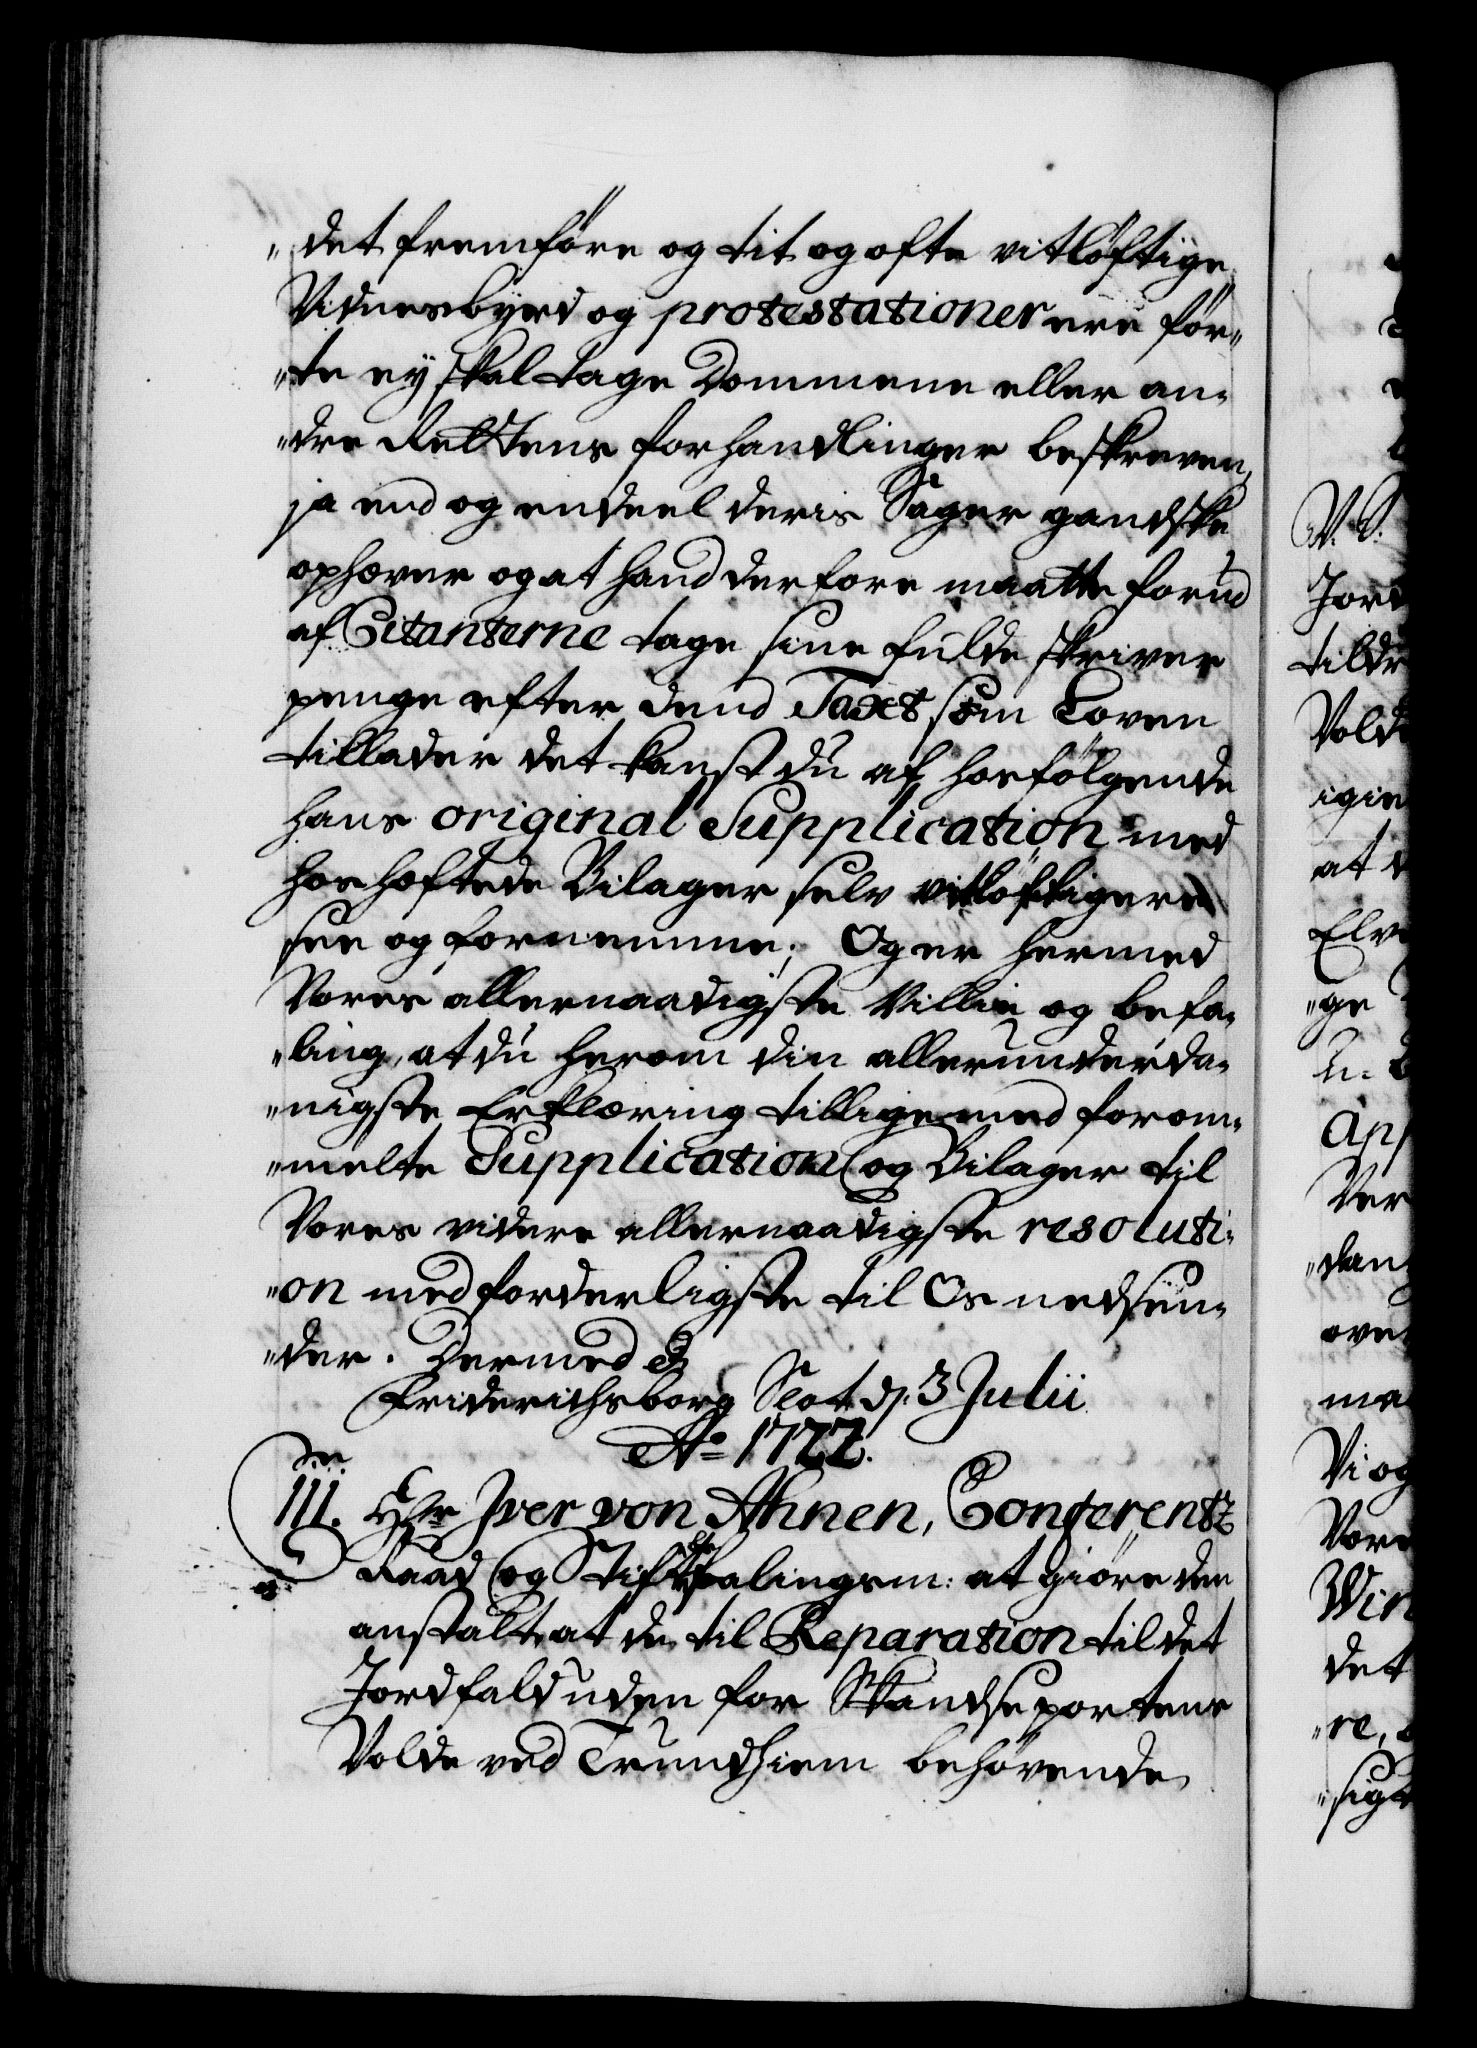 "det fremføre og tit og ofte vitløftige
Vidnesbyrd og protestationer ere før"
"te ey skal tage Dommene eller an"
"dre Rettens forhandlinger beskreven,
ja end og endeel deris Sager gandske
ophæver og at hand derfore maatte forud
af Citanterne tage sine fulde skriver
penge efter dend Taxt som Loven
tillader det kanst du af hosfølgende
hans original Supplication med
hoshæftede Bilager selv vitløftigere
see og fornemme; Og er hermed
Vores allernaadigste Villie og befa"
"ling, at du herom din allerunderda"
"nigste Erklæring tillige med forom"
"melte Supplication og Bilager til
Vores videre allernaadigste resoluti"
"on med forderligste til Os nedsen"
"der. Dermed &
Friderichsborg Slot d. 3 Julii
Ao 1722.
111. Hr Iver von Ahnen, Conferentz
Raad og Stiftbefalingsm: at giøre den
anstalt, at de til Reparation til det
Jordfald uden for Skandseportens
Volde ved Trundhiem behøvende
V. S.
Jord
tildr
Vold
igie
at d
Elv
"ge
App
Ver
"dan
ove
ma
Vi og
Vore
Win
det
"re,
"sigt